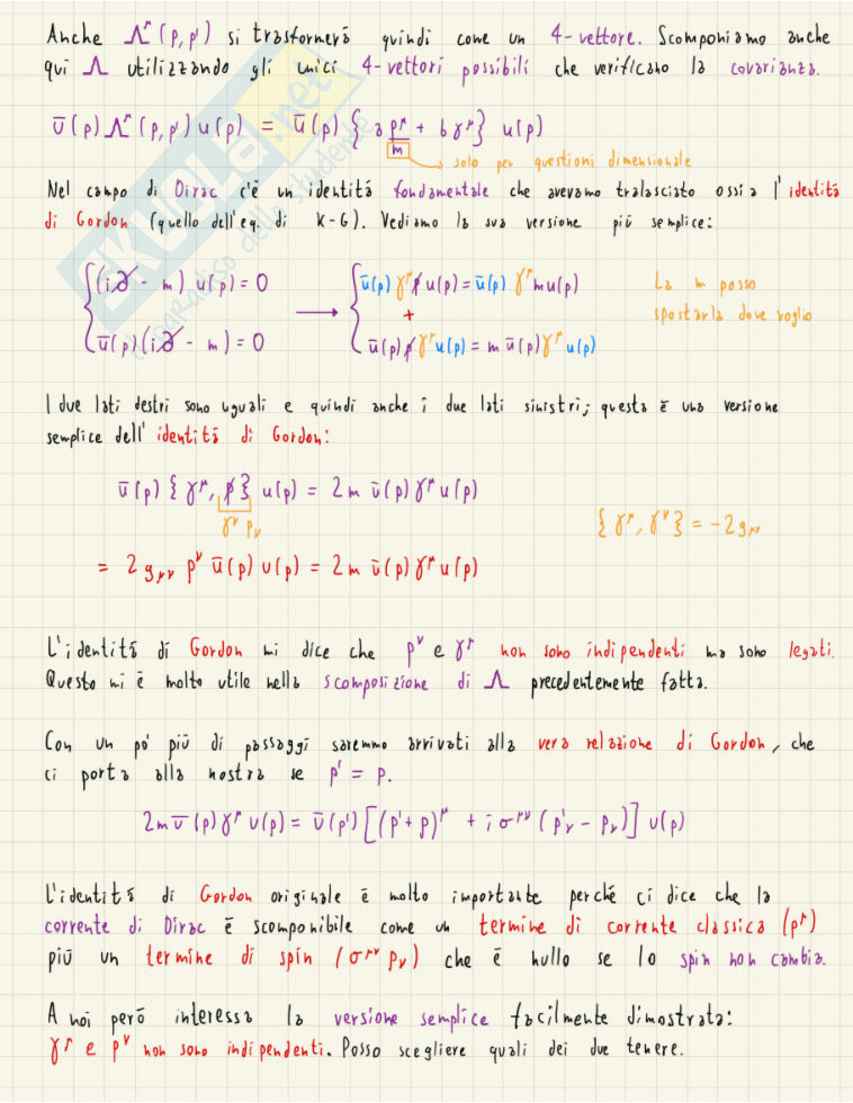 Anche Λ^μ(p,p') si trasformerá quindi come un 4-vettore. Scomponiamo anche
qui Λ utilizzando gli unici 4-vettori possibili che verificano la covarianza.
SKUOLA.net
il paradiso dello studente
ū(p) Λ^μ(p,p') u(p) = ū(p) { a p^μ/m + b γ^μ } u(p)
solo per questioni dimensionale
Nel campo di Dirac c'é un identitá fondamentale che avevamo tralasciato ossia l'identitá
di Gordon (quello dell'eq. di K-G). Vediamo la sua versione piú semplice:
{(i∂̸ - m) u(p) = 0 → {ū(p) γ^μ p̸ u(p) = ū(p) γ^μ m u(p) La m posso
+ spostarla dove voglio
ū(p)(i∂̸ - m) = 0 ū(p) p̸ γ^μ u(p) = m ū(p) γ^μ u(p)
I due lati destri sono uguali e quindi anche i due lati sinistri; questa é una versione
semplice dell'identitá di Gordon:
ū(p) { γ^μ, p̸ } u(p) = 2m ū(p) γ^μ u(p)
γ^ν p_ν {γ^μ, γ^ν} = -2g_μν
= 2 g_μν p^ν ū(p) u(p) = 2m ū(p) γ^μ u(p)
L'identitá di Gordon mi dice che p^ν e γ^μ non sono indipendenti ma sono legati.
Questo mi é molto utile nella scomposizione di Λ precedentemente fatta.
Con un pó piú di passaggi saremmo arrivati alla vera relazione di Gordon, che
ci porta alla nostra se p' = p.
2m ū(p) γ^μ u(p) = ū(p') [(p'+p)^μ + i σ^μν (p'_ν - p_ν)] u(p)
L'identitá di Gordon originale é molto importante perché ci dice che la
corrente di Dirac é scomponibile come un termine di corrente classica (p^μ)
piú un termine di spin (σ^μν p_ν) che é nullo se lo spin non cambia.
A noi peró interessa la versione semplice facilmente dimostrata:
γ^μ e p^ν non sono indipendenti. Posso scegliere quali dei due tenere.